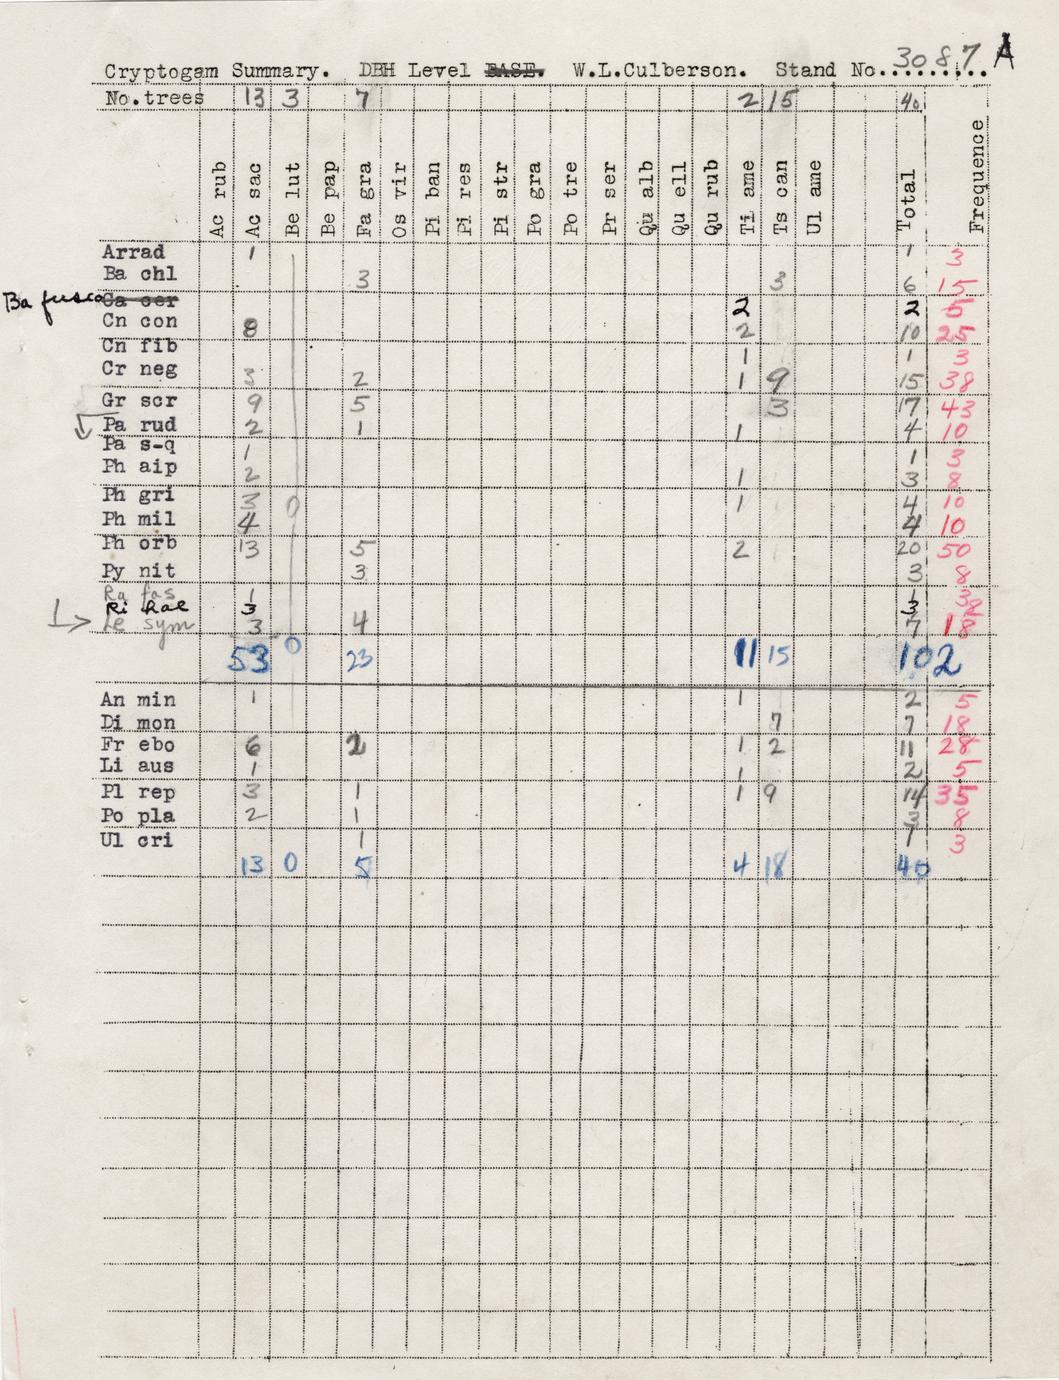 Cryptogam Summary. DBH Level BASE. W.L.Culberson. Stand No. 3087 A
No. trees 13 3 7 2 15 40
Ac rub Ac sac Be lut Be pap Fa gra Os vir Pi ban Pi res Pi str Po gra Po tre Pr ser Qu alb Qu ell Qu rub Ti ame Ts can Ul ame Total Frequency
Arrad 1 1 3
Ba chl 3 3 6 15
Ba fusca Ca cer 2 2 5
Cn con 8 2 10 25
Cn fib 1 1 3
Cr neg 3 2 1 9 15 38
Gr scr 9 5 3 17 43
Pa rud 2 1 1 4 10
Pa s-q 1 1 3
Ph aip 2 1 3 8
Ph gri 3 0 1 4 10
Ph mil 4 4 10
Ph orb 13 5 2 20 50
Py nit 3 3 8
Ra fas 1 1 3
Ri Hae 3 3 8
Le sym 3 4 7 18
53 0 23 11 15 102
An min 1 1 2 5
Di mon 7 7 18
Fr ebo 6 2 1 2 11 28
Li aus 1 1 2 5
Pl rep 3 1 1 9 14 35
Po pla 2 1 3 8
Ul cri 1 1 3
13 0 5 4 18 40